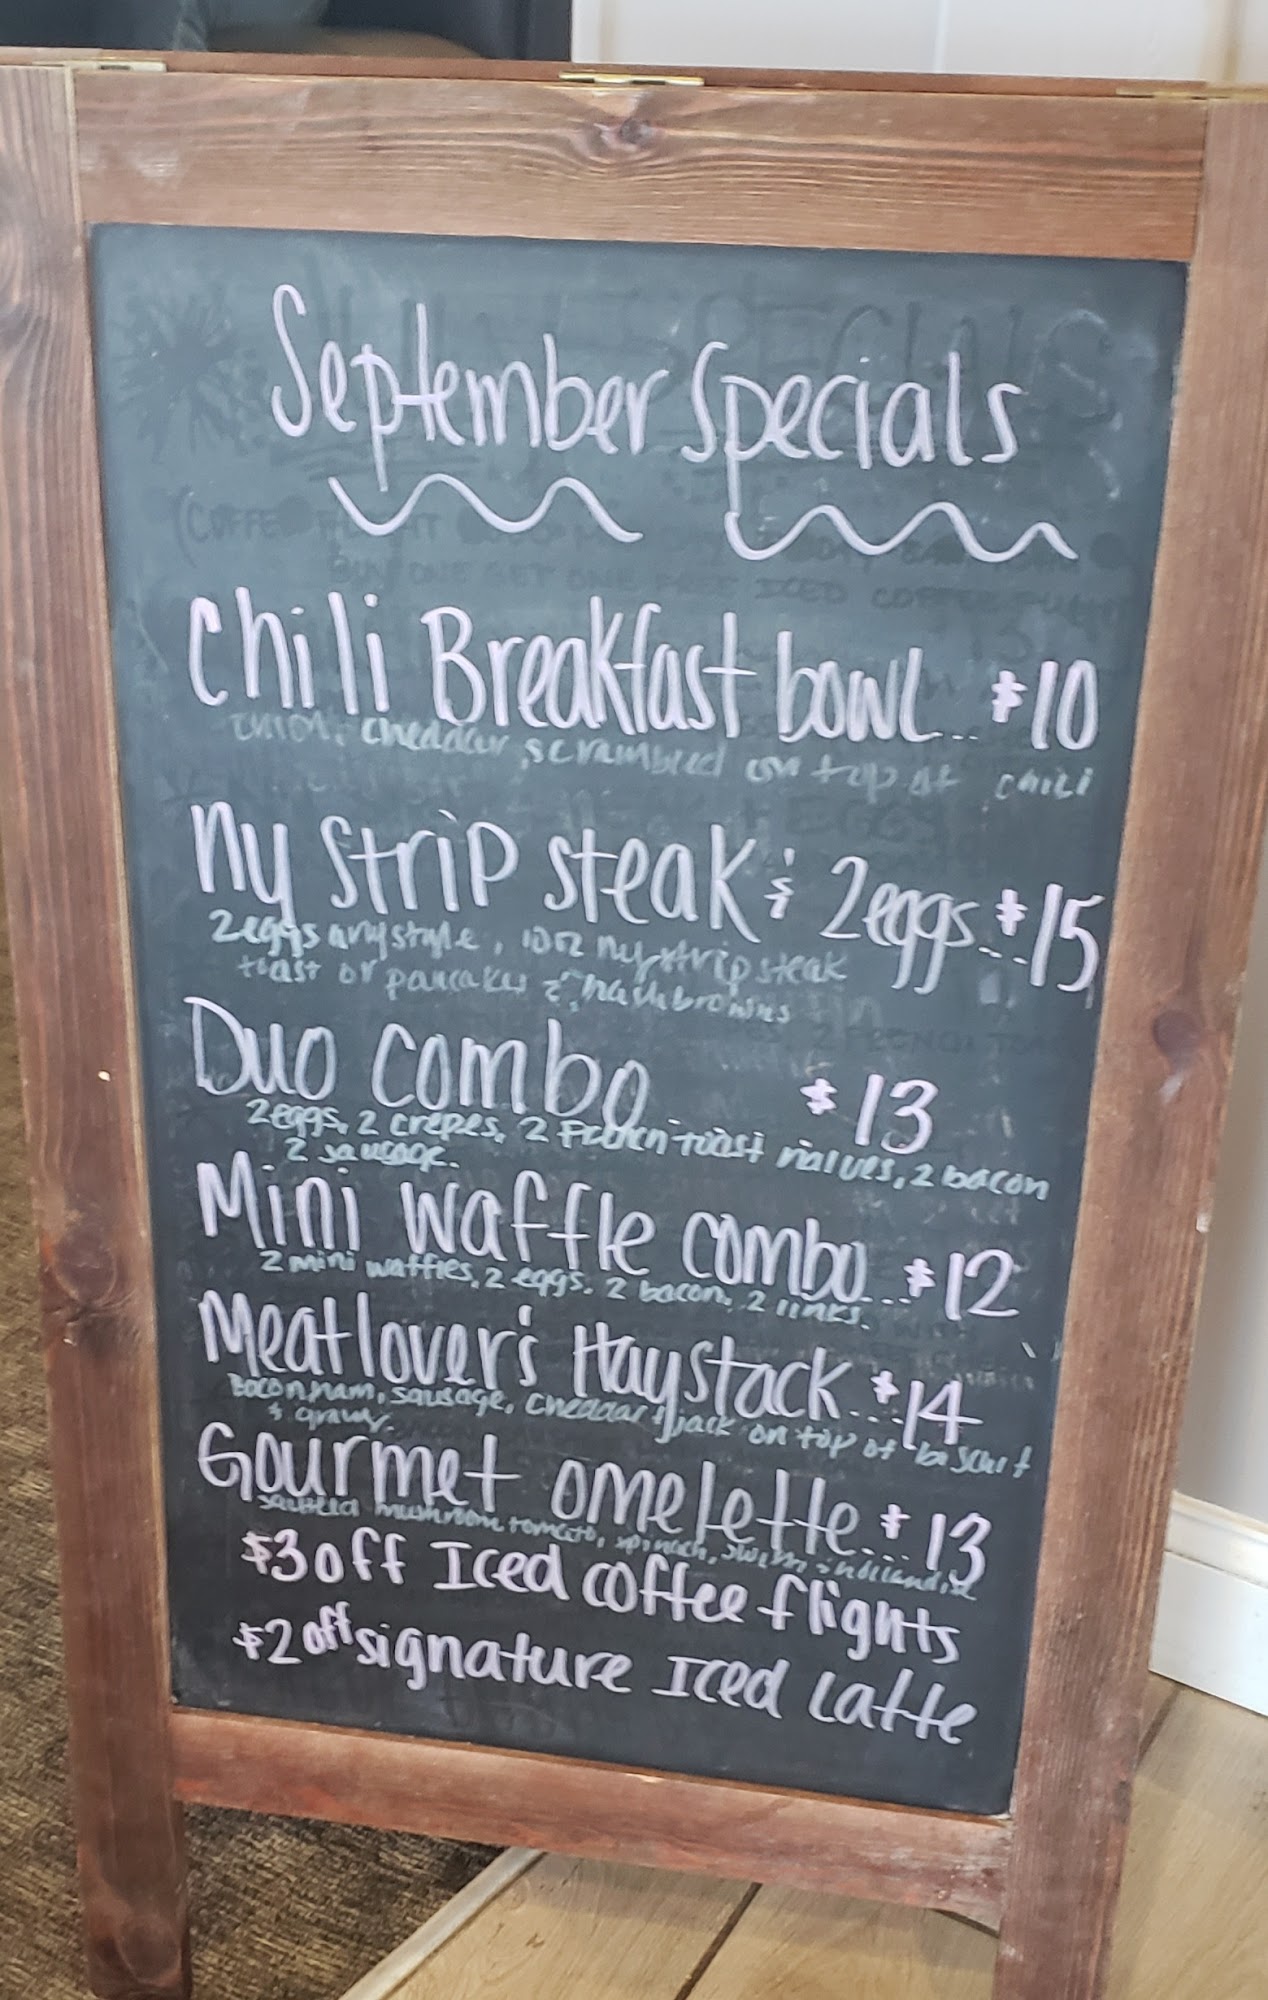 September Specials
Chili Breakfast bowl... $10
onion, cheddar, scrambled on top of chili
Ny Strip Steak & 2eggs...$15
2eggs any style, 10oz ny strip steak
toast or pancakes & hashbrowns
Duo Combo $13
2eggs, 2 crepes, 2 French toast halves, 2 bacon
2 sausage.
Mini Waffle Combo...$12
2 mini waffles, 2 eggs, 2 bacon, 2 links.
Meatlover's Haystack...$14
Bacon, ham, sausage, cheddar & jack on top of biscuit
& gravy.
Gourmet omelette...$13
mushroom, tomato, spinach, swiss
$3 off Iced coffee flights
$2 off signature Iced Latte